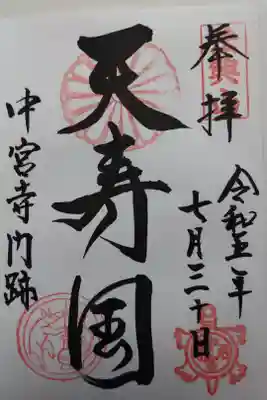 奉拝
令和五年
七月三十日
天寿国
中宮寺门跡